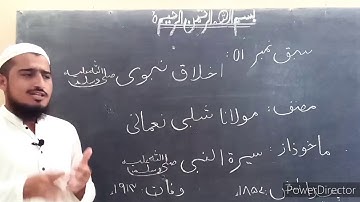 بسم اللہ الرحمن الرحیم
سبق نمبر 01: اخلاق نبوی ﷺ
مصنف: مولانا شبلی نعمانی
ماخوذ از: سیرۃ النبی ﷺ
1857ء وفات: 1914ء
PowerDirector